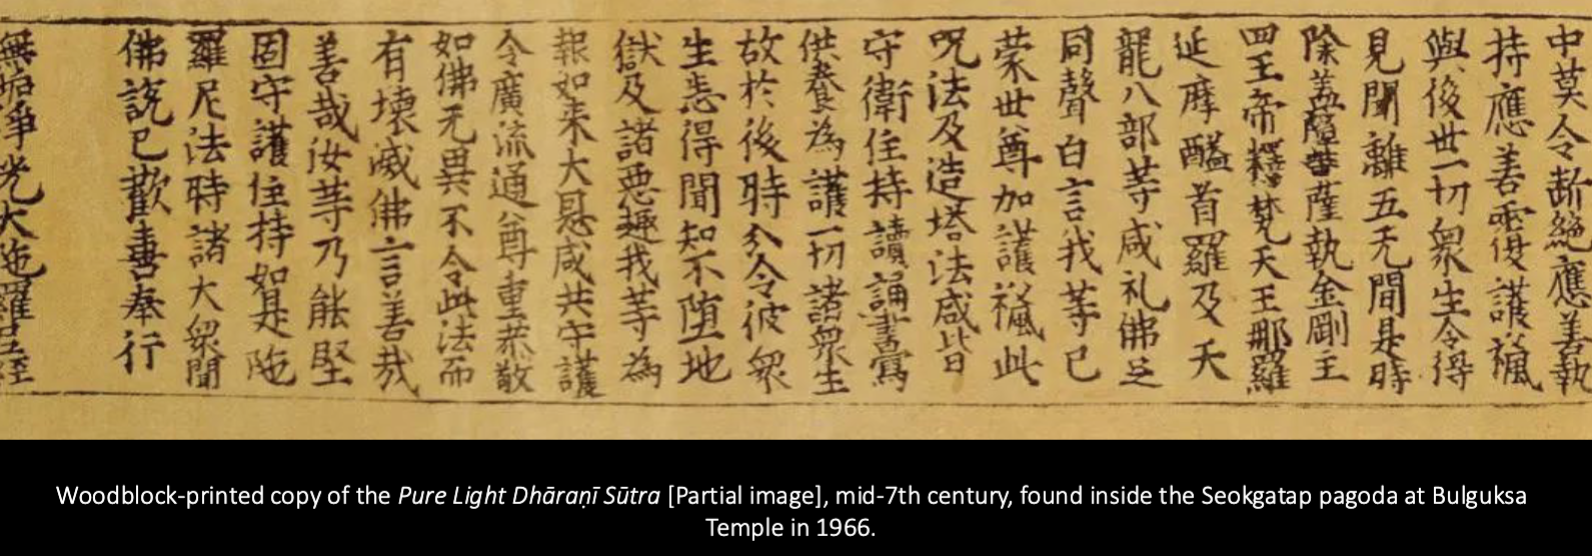 中莫令断絶應善執
持應善覆護𥠢
與後世一切衆生令得
見聞離五无間是時
除盖障菩薩執金剛主
四王帝釋梵天王那羅
延摩醯首羅及天
龍八部等咸礼佛足
同聲白言我等已
蒙世尊加護𥠢此
呪法及造塔法咸皆
守衛住持讀誦書寫
供養為護一切諸衆生
故於後時分令彼衆
生恙得聞知不堕地
獄及諸惡趣我等為
報如来大恩咸共守護
令廣流通尊重恭敬
如佛无異不令此法而
有壊滅佛言善哉
善哉汝等乃能堅
固守護住持如是陁
羅尼法時諸大衆聞
佛說已歡喜奉行
無垢淨光大陁羅尼經
Woodblock-printed copy of the Pure Light Dhāraṇī Sūtra [Partial image], mid-7th century, found inside the Seokgatap pagoda at Bulguksa
Temple in 1966.